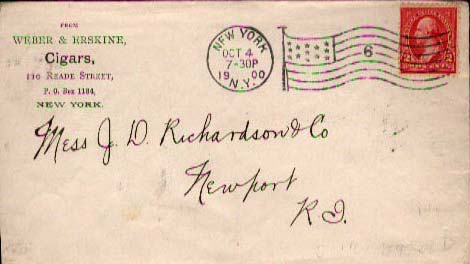 FROM
WEBER & ERSKINE,
Cigars,
116 READE STREET,
P. O. Box 1184,
NEW YORK.
NEW YORK
OCT 4
7-30P
1900
N.Y.
6
2 2
Mess J. D. Richardson & Co
Newport
R I.